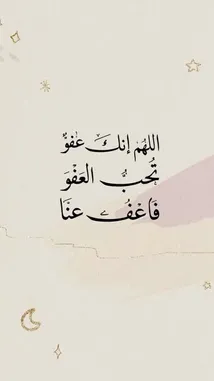 اللهُم إنكَ عَفوٌ
تُحبُّ العَفْوَ
فَاعْفُ عنَا